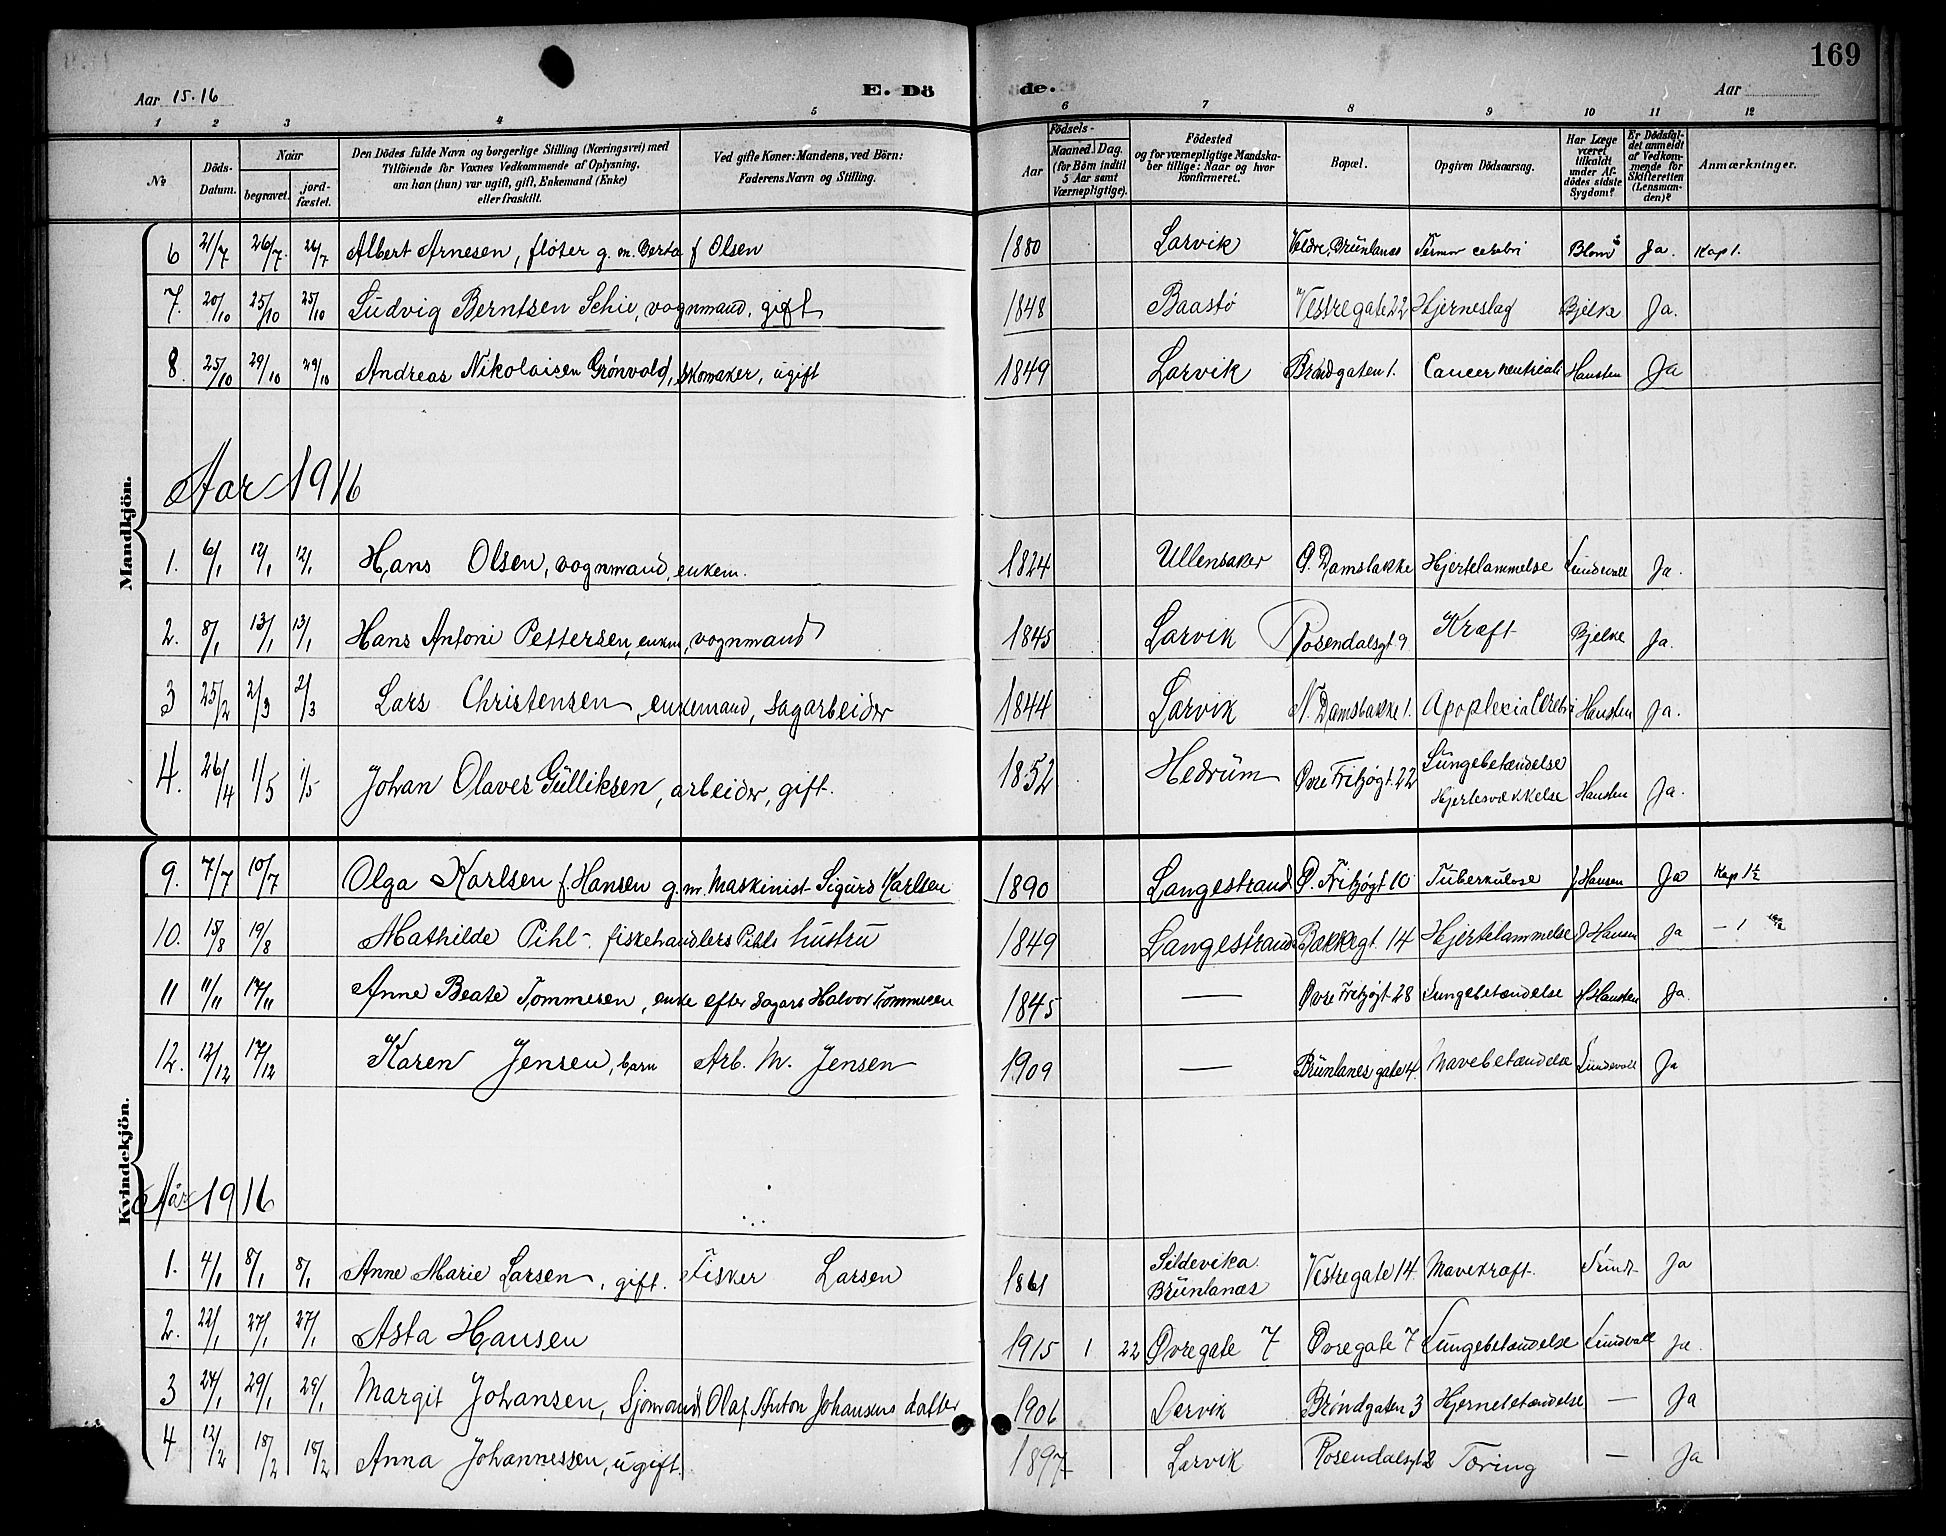 169
Aar 15.16 E. Dö de. Aar
1 2 3 4 5 6 7 8 9 10 11 12
No. Döds-Datum. Naar begravet. jordfæstet. Den Dödes fulde Navn og borgerlige Stilling (Næringsvei) med Tilföiende for Voxnes Vedkommende af Oplysning, om han (hun) var ugift, gift, Enkemand (Enke) eller fraskilt. Ved gifte Koner: Mandens, ved Börn: Faderens Navn og Stilling. Födsels- Aar Maaned. Dag. (for Börn indtil 5 Aar samt Værnepligtige). Födested og for værnepligtige Mandskaber tillige: Naar og hvor konfirmeret. Bopæl. Opgiven Dödsaarsag. Har Læge været tilkaldt under Afdödes sidste Sygdom? Er Dödsfaldet anmeldt af Vedkommende for Skifteretten (Lensmanden)? Anmærkninger.
Mandkjön.
6 21/7 26/7 26/7 Albert Arnesen, fløter g. m. Berta f Olsen 1880 Larvik Veldre, Brünlanes cerebri Blom Ja. Kap 1.
7. 20/10 25/10 25/10 Ludvig Berntsen Schie, vognmand, gift 1848 Baastø Vestregate 22 Hjerneslag Bjelke Ja.
8. 25/10 29/10 29/10 Andreas Nikolaisen Grönvold, skomaker, ugift 1849 Larvik Bröndgaten 1. Cancer ventriculi Hansten Ja
Aar 1916
1. 6/1 12/1 12/1 Hans Olsen, vognmand, enkem. 1824 Ullensaker Ø. Damsbakke Hjertelammelse Lundevall Ja.
2. 8/1 13/1 13/1 Hans Antoni Pettersen, enkem, vognmand 1845 Larvik Rosendalsgt 9 Kræft Bjelke Ja.
3 25/2 2/3 2/3 Lars Christensen, enkemand, sagarbeider 1844 Larvik N. Damsbakke 1. Apoplexia Cerebri Hansten Ja.
4. 26/4 1/5 1/5 Johan Olaves Gülliksen, arbeider, gift. 1852 Hedrüm Øvre Fritzøgt. 22 Lungebetændelse Hjertesvækkelse Hansten Ja.
Kvindekjön.
9. 7/7 10/7 Olga Karlsen f. Hansen g. m. Maskinist Sigurd Karlsen 1890 Langestrand Ø. Fritzøgt 10 Tuberkulose J Hansen Ja Kap 1 1/2
10. 15/8 19/8 Mathilde Pihl - fiskehandlers Pihls hustru 1849 Langestrand Bakkegt. 14 Hjertelammelse J Hansen Ja - 1
11 11/11 17/11 Anne Beate Tommesen, enke efter sagarb Halvor Tommesen 1845 — Øvre Fritzøgt 28 Lungebetændelse H Hansten Ja.
12. 12/12 17/12 Karen Jensen, barn Arb. M. Jensen 1909 — Brünlanes gate 4. Mavebetændelse Lundevall Ja
Aar 1916
1. 4/1 8/1 8/1 Anne Marie Larsen, gift. Fisker Larsen 1861 Sildevika Brünlanæs Vestregate 14 Mavekræft. Ja
2. 22/1 27/1 27/1 Asta Hansen 1915 1 22 Øvregate 7 Øvregate 7 Lungebetændelse Lundevall Ja.
3 24/1 29/1 29/1 Margit Johansen, Sjömand Olaf Anton Johansens datter 1906 Larvik Bröndgaten 3 Hjernebetændelse — Ja
4 12/2 18/2 18/2 Anna Johannessen, ugift. 1897 Larvik Rosendalsgt 2 Tæring — Ja